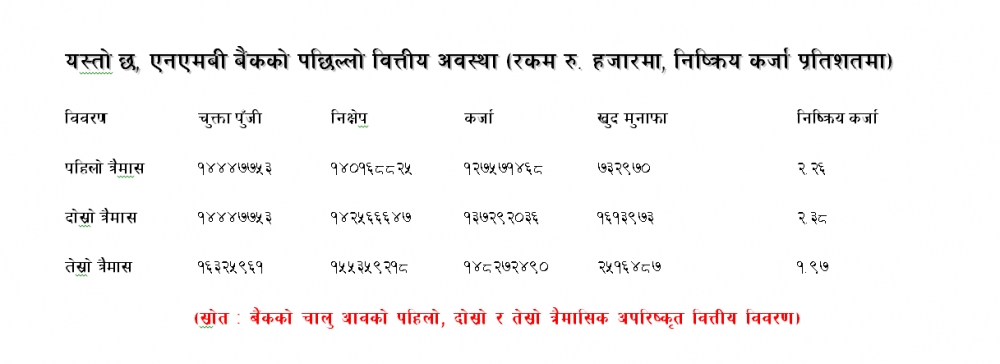 यस्तो छ, एनएमबी बैंकको पछिल्लो वित्तीय अवस्था (रकम रु. हजारमा, निष्क्रिय कर्जा प्रतिशतमा)
विवरण चुक्ता पुँजी निक्षेप कर्जा खुद मुनाफा निष्क्रिय कर्जा
पहिलो त्रैमास १४४४७७५३ १४०१६८८२५ १२७५७१४६८ ७३२९७० २.२६
दोस्रो त्रैमास १४४४७७५३ १४२५६६६४७ १३७२९२०३६ १६१३९७३ २.३८
तेस्रो त्रैमास १६३२५९६१ १५५३५९२१८ १४८२७२४९० २५१६४८७ १.९७
(स्रोत : बैंकको चालु आवको पहिलो, दोस्रो र तेस्रो त्रैमासिक अपरिष्कृत वित्तीय विवरण)